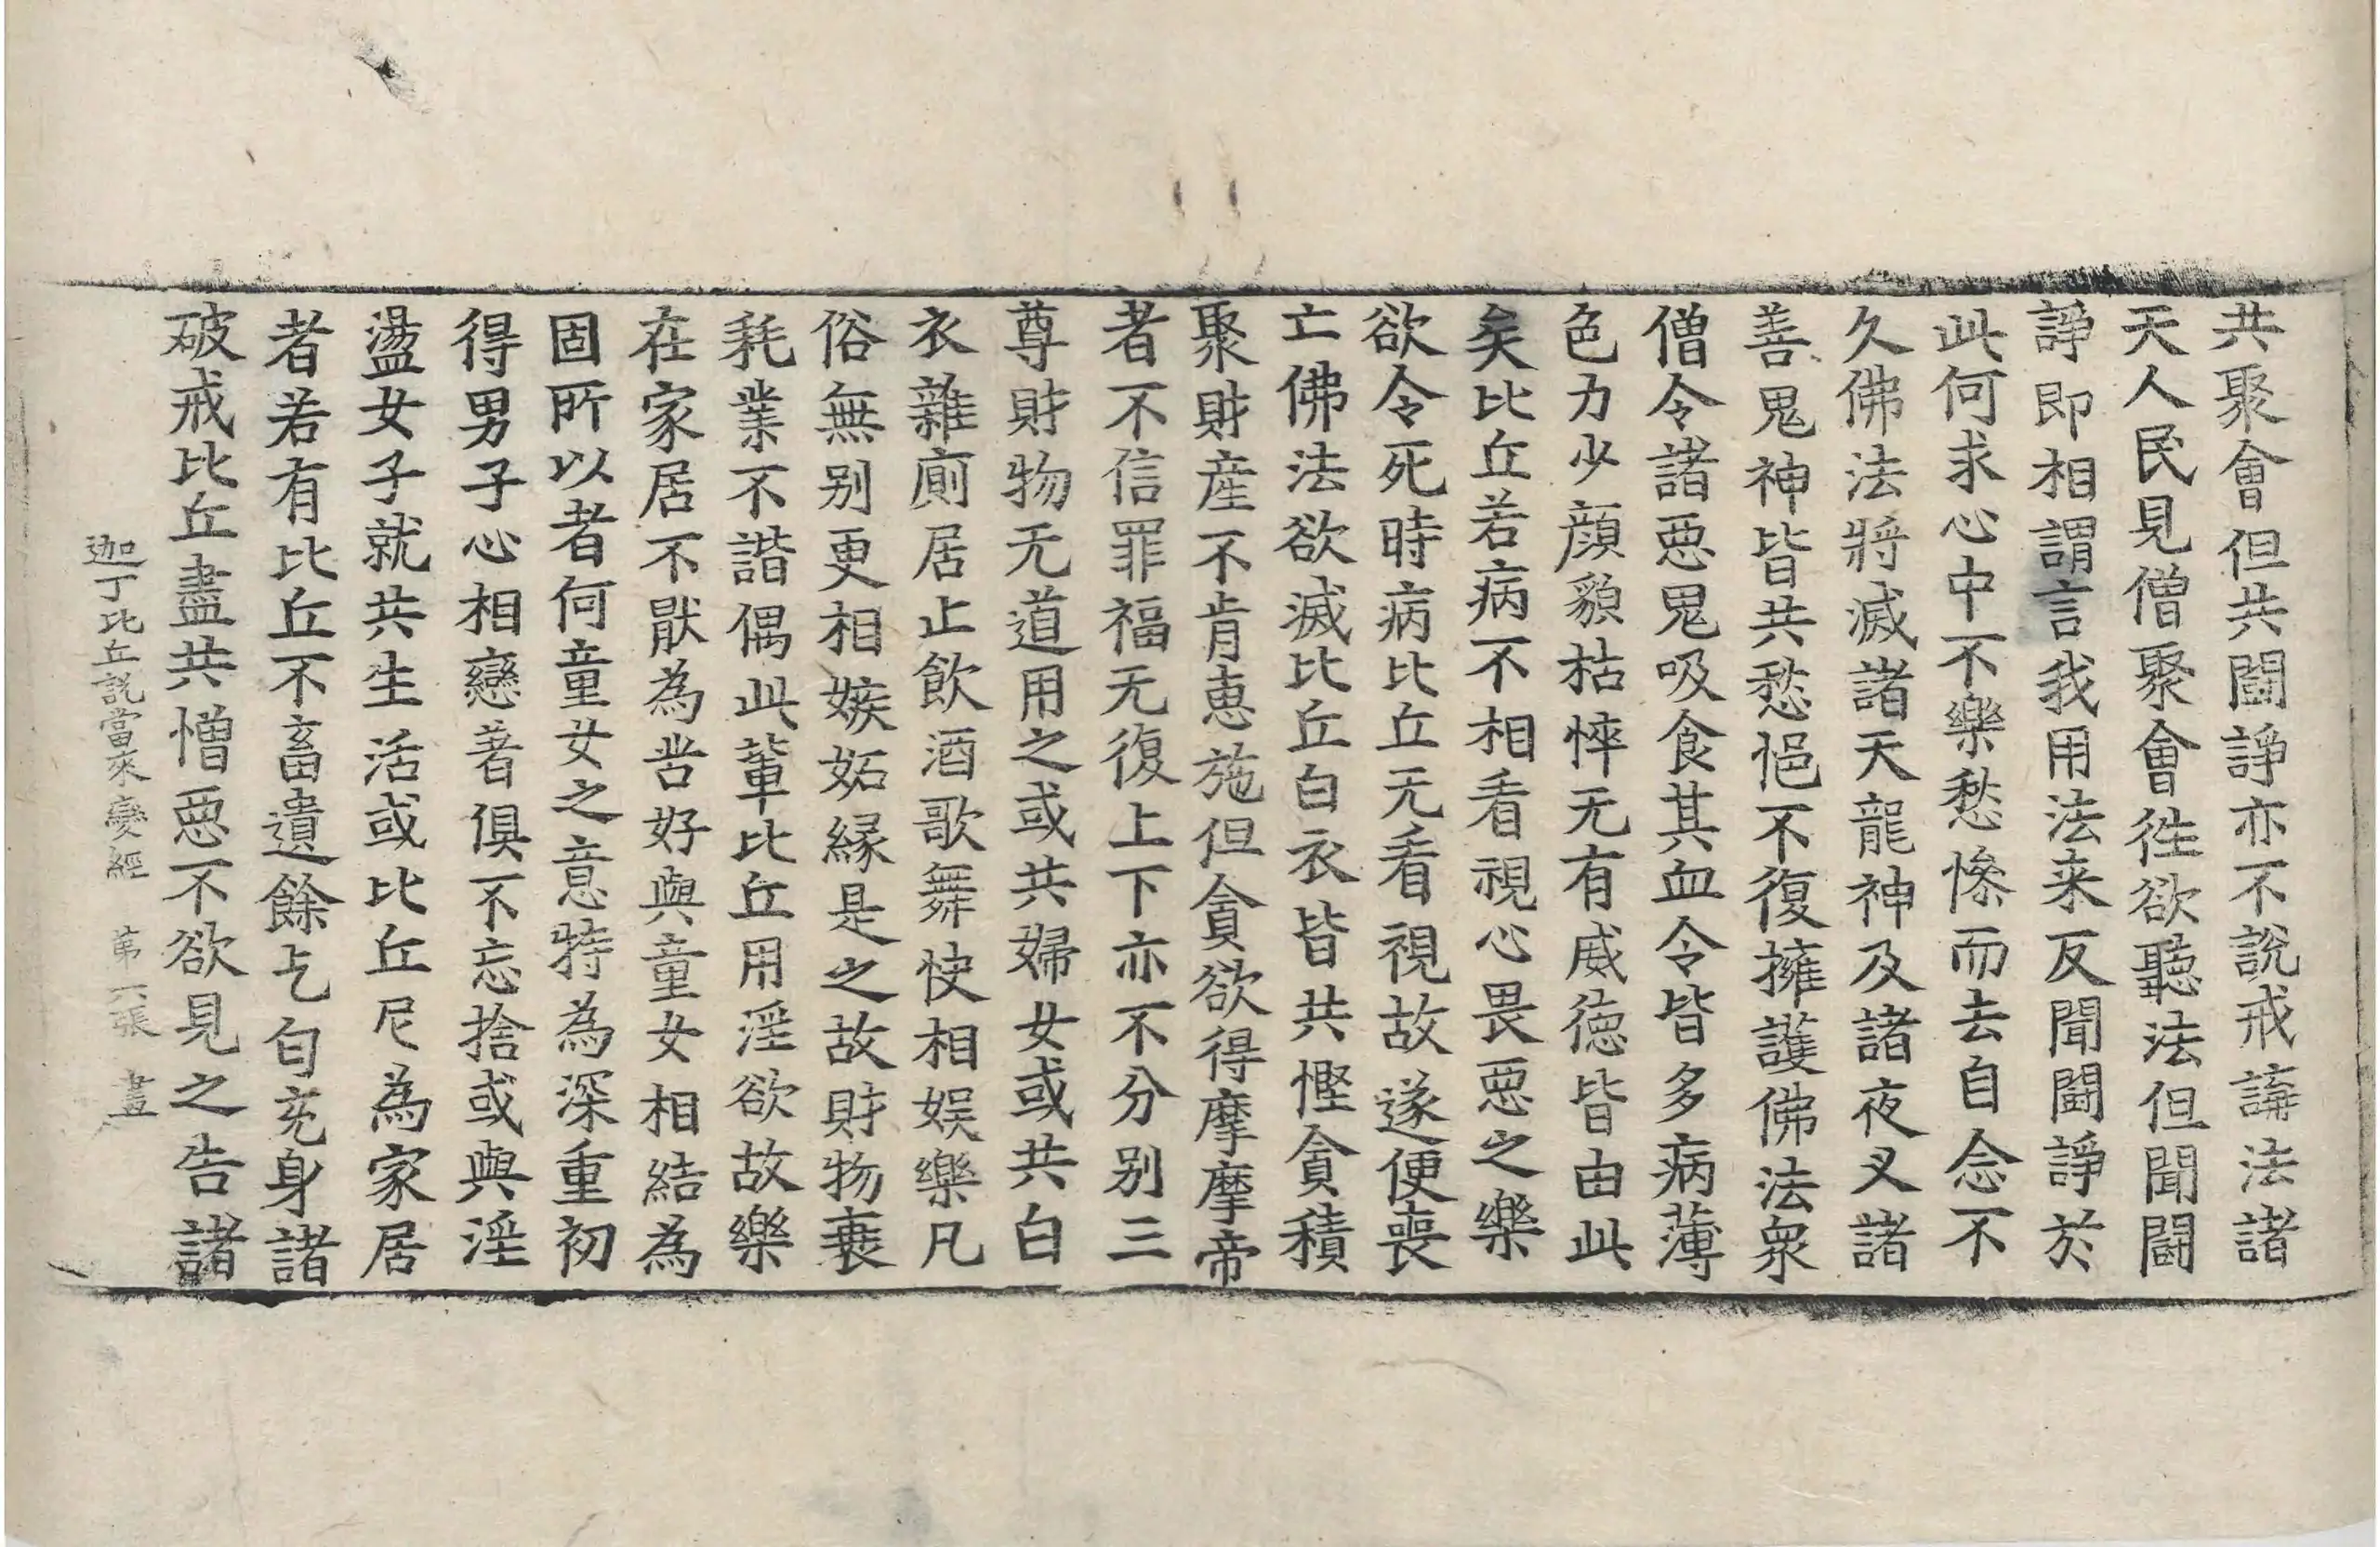 共聚會但共鬪諍亦不說戒講法諸
天人民見僧聚會徃欲聽法但聞鬪
諍即相謂言我用法来反聞鬪諍於
此何求心中不樂愁慘而去自念不
久佛法將滅諸天龍神及諸夜叉諸
善鬼神皆共愁悒不復擁護佛法衆
僧令諸惡鬼吸食其血令皆多病薄
色力少顔貌枯悴无有威德皆由此
矣比丘若病不相看視心畏惡之樂
欲令死時病比丘无看視故遂便喪
亡佛法欲滅比丘白衣皆共慳貪積
聚財産不肯恵施但貪欲得摩摩帝
者不信罪福无復上下亦不分别三
尊財物无道用之或共婦女或共白
衣雜廁居止飲酒歌舞快相娯樂凡
俗無别更相嫉妬縁是之故財物衰
耗業不諧偶此輩比丘用淫欲故樂
在家居不猒為苦好與童女相結為
固所以者何童女之意特為深重初
得男子心相戀著俱不忘捨或與淫
蕩女子就共生活或比丘尼為家居
者若有比丘不畜遺餘乞匃充身諸
破戒比丘盡共憎惡不欲見之告諸
迦丁比丘說當來變經 第六張 晝